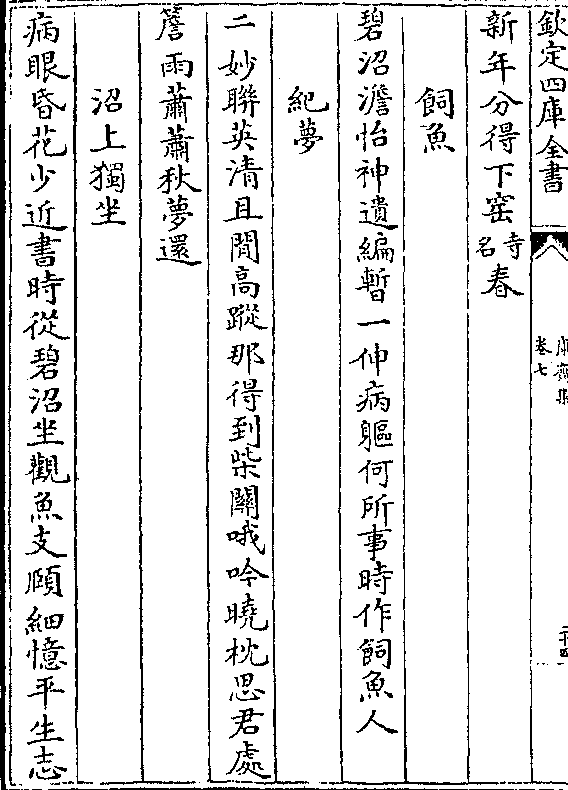 欽定四庫全書
卷七
新年分得下窑寺名春
飼魚
碧沼澹怡神遺編暫一伸病軀何所事時作飼魚人
紀夢
二妙聯英清且閒高蹤那得到柴關哦吟曉枕思君處
簷雨蕭蕭秋夢還
沼上獨坐
病眼昏花少近書時從碧沼坐觀魚支頤細憶平生志